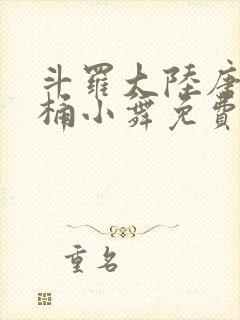 斗羅大陸唐
桶小舞免費
重名